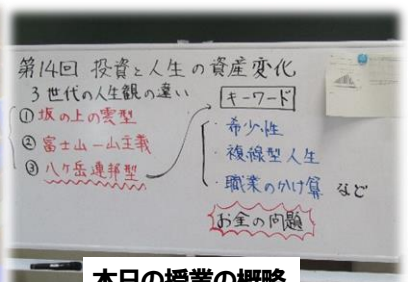 第14回 投資と人生の資産変化
3世代の人生観の違い
① 坂の上の雲型
② 富士山一山主義
③ 八ヶ岳連邦型
キーワード
・希少性
・複線型人生
・職業のかけ算 など
お金の問題
本日の授業の概略